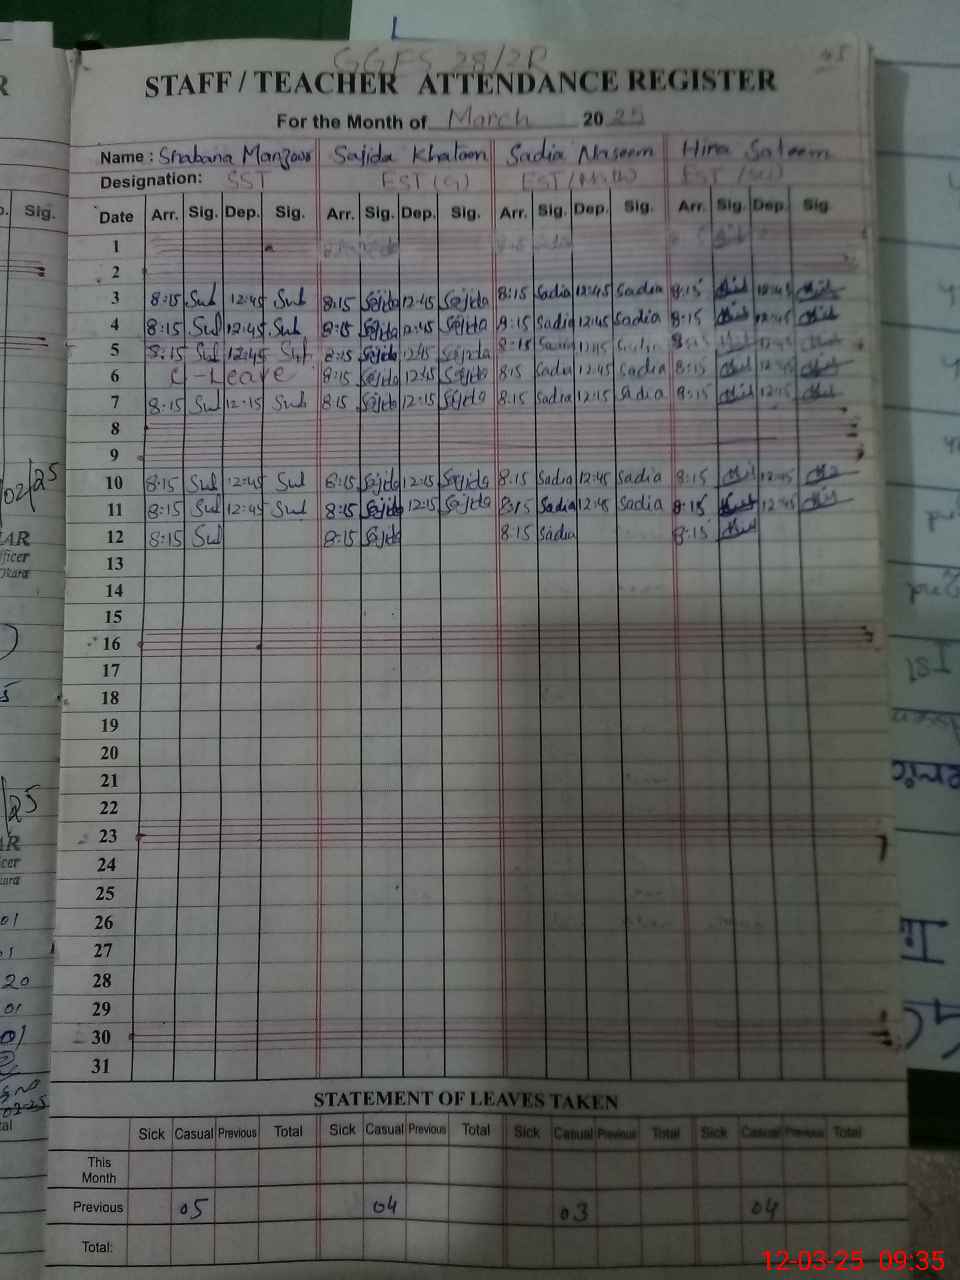 GGES 28/2R
STAFF / TEACHER ATTENDANCE REGISTER
For the Month of March 2025
Name : Shabana Manzoor Sajida Khatoon Sadia Naseem Hira Saleem
Designation: SST EST (G) EST
Date Arr. Sig. Dep. Sig. Arr. Sig. Dep. Sig. Arr. Sig. Dep. Sig. Arr. Sig. Dep. Sig
1
2
3 8:15 Sul 12:45 Sul 8:15 Sajida 12:45 Sajida 8:15 Sadia 12:45 Sadia 8:15 12:45
4 8:15 Sul 12:45 Sul 8:15 Sajida 12:45 Sajida 8:15 Sadia 12:45 Sadia 8:15 12:45
5 8:15 Sul 12:45 Sul 8:15 Sajida 12:45 Sajida 8:15 Sadia 12:45 Sadia 8:15 12:45
6 C-Leave 8:15 Sajida 12:45 Sajida 8:15 Sadia 12:45 Sadia 8:15 12:45
7 8:15 Sul 12:15 Sul 8:15 Sajida 12:15 Sajida 8:15 Sadia 12:15 Sadia 8:15 12:15
8
9
10 8:15 Sul 12:45 Sul 8:15 Sajida 12:15 Sajida 8:15 Sadia 12:45 Sadia 8:15 12:45
11 8:15 Sul 12:45 Sul 8:15 Sajida 12:15 Sajida 8:15 Sadia 12:45 Sadia 8:15 12:45
12 8:15 Sul 8:15 Sajida 8:15 Sadia 8:15
13
14
15
16
17
18
19
20
21
22
23
24
25
26
27
28
29
30
31
STATEMENT OF LEAVES TAKEN
Sick Casual Previous Total Sick Casual Previous Total Sick Casual Previous Total Sick Casual Previous Total
This Month
Previous 05 04 03 04
Total:
12-03-25 09:35